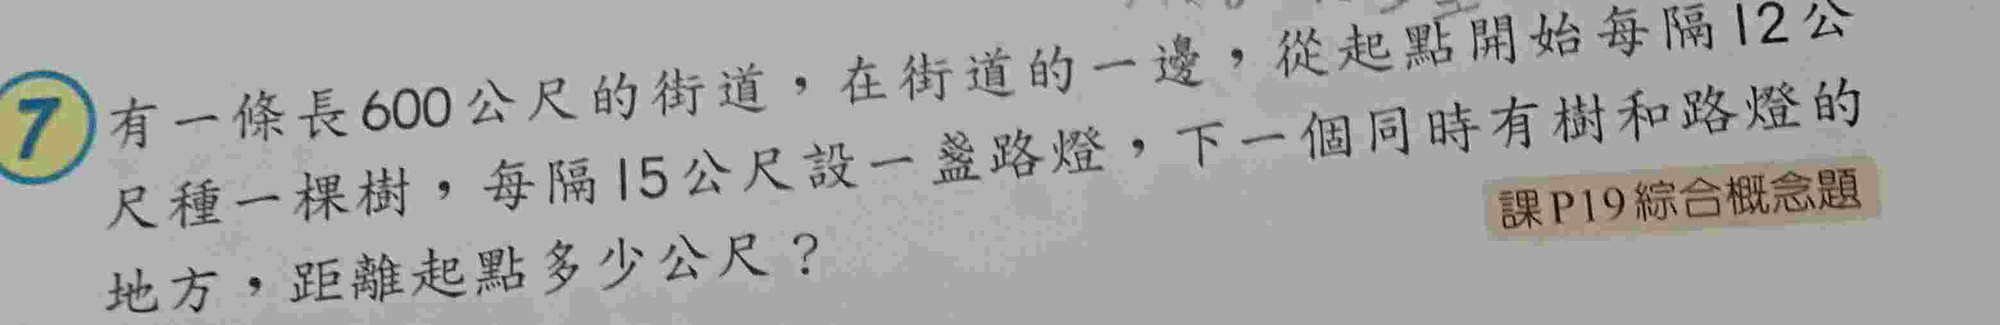 7 有一條長600公尺的街道，在街道的一邊，從起點開始每隔12公
尺種一棵樹，每隔15公尺設一盞路燈，下一個同時有樹和路燈的
地方，距離起點多少公尺？
課P19綜合概念題